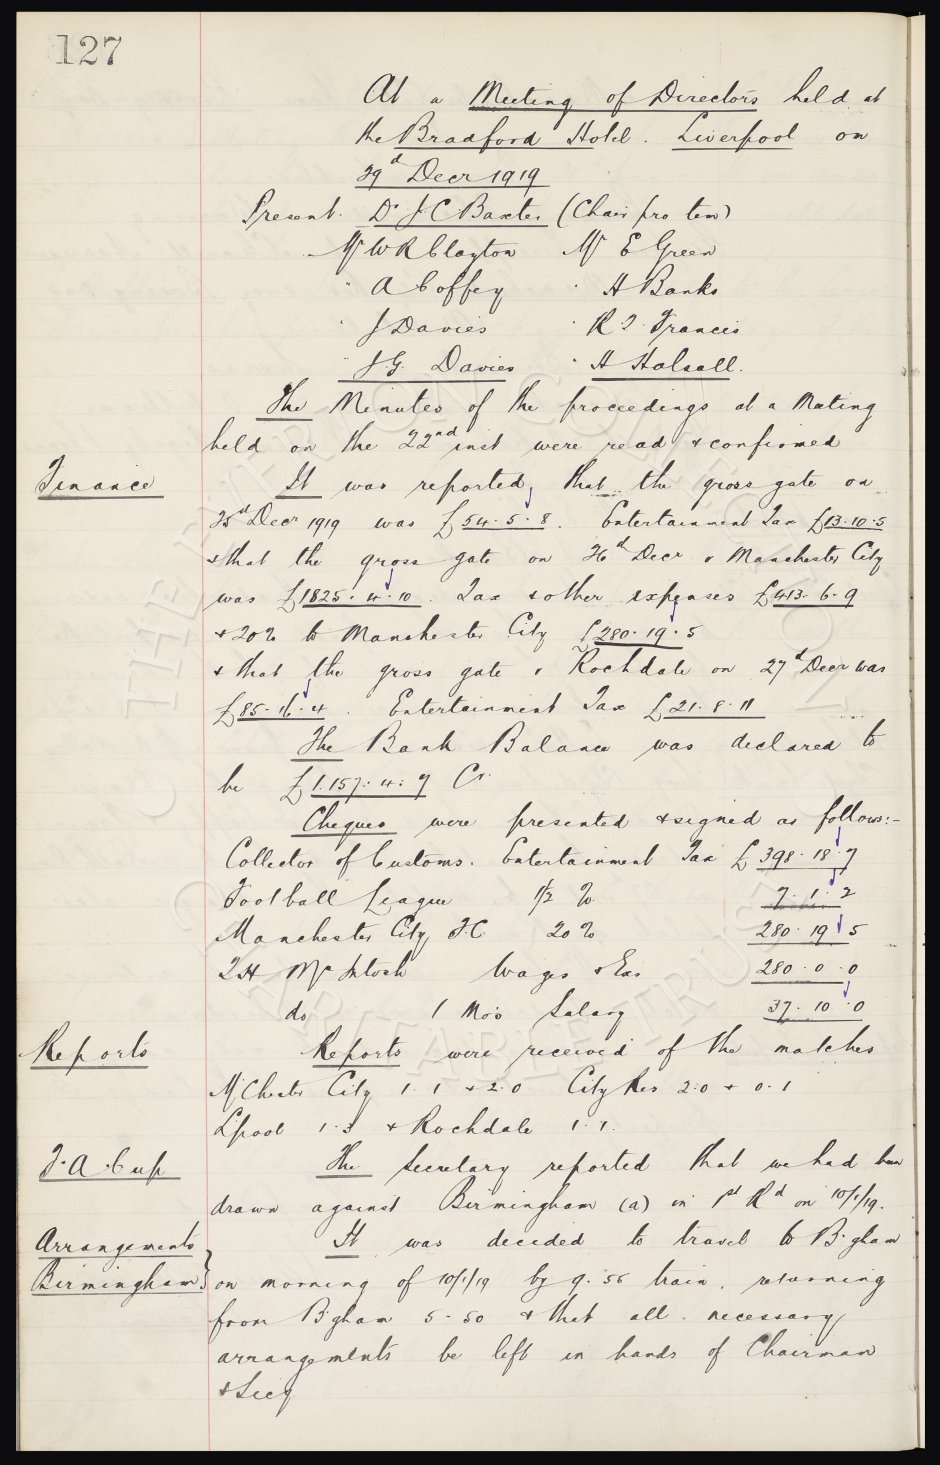 127
At a Meeting of Directors held at
the Bradford Hotel. Liverpool on
29d Decr 1919
Present. Dr J C Baxter (Chair pro tem)
Mr W R Clayton Mr E Green
" A Coffey " H Banks
" J Davies " R T Francis
" J.G. Davies " H Halsall.
The Minutes of the proceedings at a Meeting
held on the 22nd inst were read & confirmed
Finance
It was reported, that the gross gate on
25d Decr 1919 was £54.5.8. Entertainment Tax £13.10.5
& that the gross gate on 26d Decr v Manchester City
was £1825.4.10. Tax & other expenses £413.6.9
& 20% to Manchester City £280.19.5
& that the gross gate v Rochdale on 27d Decr was
£85.16.4. Entertainment Tax £21.8.11
The Bank Balance was declared to
be £1.157.4.7 Cr.
Cheques were presented & signed as follows:-
Collector of Customs. Entertainment Tax £398.18.7
Football League 1/2 % 7.1.2
Manchester City F.C. 20% 280.19.5
T H McIntosh Wages & Exs 280.0.0
do 1 Mos Salary 37.10.0
Reports
Reports were received of the matches
M'Chester City 1.1 & 2.0 City Res 2.0 & 0.1
L'pool 1.3 & Rochdale 1.1.
F.A. Cup
The Secretary reported that we had been
drawn against Birmingham (a) in 1st Rd on 10/1/19.
Arrangements
Birmingham}
It was decided to travel to B'gham
on morning of 10/1/19 by 9.55 train, returning
from B'gham 5-50 & that all necessary
arrangements be left in hands of Chairman
& Secy
THE EVERTON COLLECTION
CHARITABLE TRUST